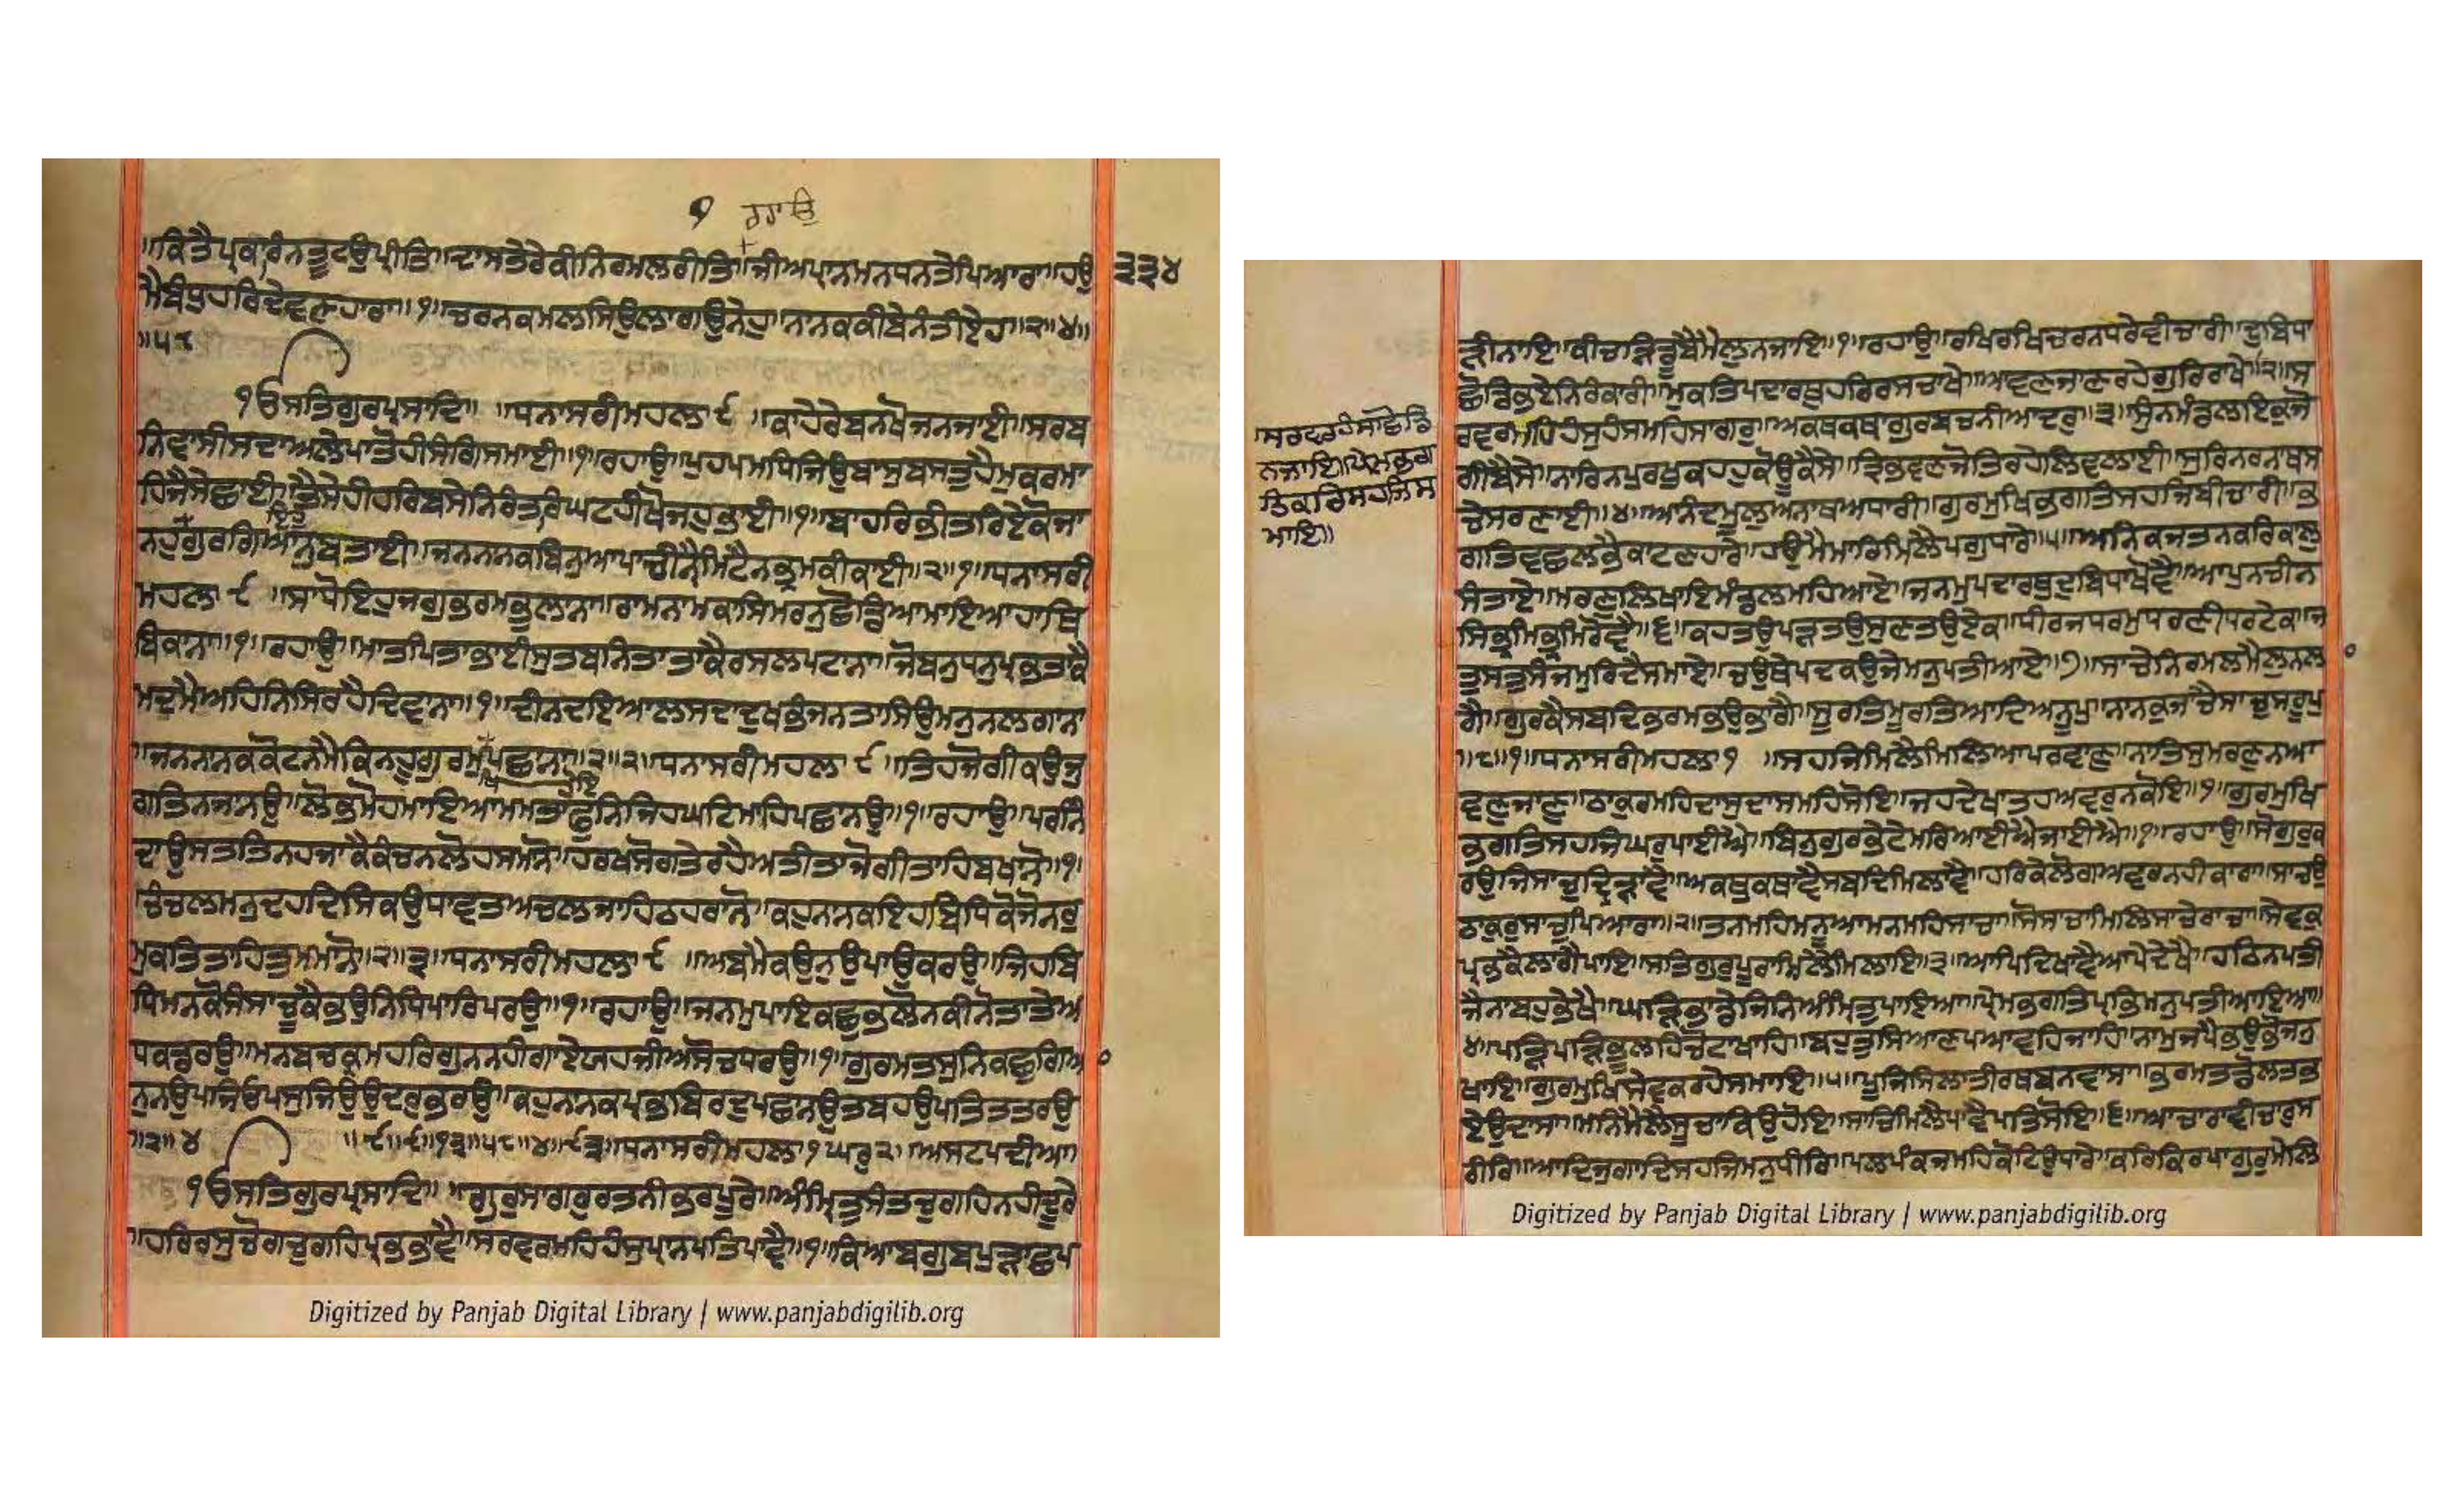 ੧ ਰਹਾਉ
॥ਕਿਤੈਪ੍ਰਕਾਰਿਨਤੂਟਉਪ੍ਰੀਤਿ॥ਦਾਸਤੇਰੇਕੀਨਿਰਮਲਰੀਤਿ॥ਜੀਅਪ੍ਰਾਨਮਨਧਨਤੇਪਿਆਰਾ॥ਹਉ
੩੩੪
ਮੈਬੰਧੁਹਰਿਦੇਵਣਹਾਰਾ॥੧॥ਚਰਨਕਮਲਸਿਉਲਾਗਉਨੇਹੁ॥ਨਾਨਕਕੀਬੇਨੰਤੀਏਹ॥੨॥੪॥
॥੫੮
ੴਸਤਿਗੁਰਪ੍ਰਸਾਦਿ॥ ॥ਧਨਾਸਰੀਮਹਲਾ੯ ॥ਕਾਹੇਰੇਬਨਖੋਜਨਜਾਈ॥ਸਰਬ
ਨਿਵਾਸੀਸਦਾਅਲੇਪਾਤੋਹੀਸੰਗਿਸਮਾਈ॥੧॥ਰਹਾਉ॥ਪੁਹਪਮਧਿਜਿਉਬਾਸੁਬਸਤੁਹੈਮੁਕਰਮਾ
ਹਿਜੈਸੇਛਾਈ॥ਤੈਸੇਹੀਹਰਿਬਸੇਨਿਰੰਤਰਿਘਟਹੀਖੋਜਹੁਭਾਈ॥੧॥ਬਾਹਰਿਭੀਤਰਿਏਕੋਜਾ
ਨਹੁਗੁਰਗਿਆਨੁਬਤਾਈ॥ਜਨਨਾਨਕਬਿਨੁਆਪਾਚੀਨੈਮਿਟੈਨਭ੍ਰਮਕੀਕਾਈ॥੨॥੧॥ਧਨਾਸਰੀ
ਮਹਲਾ੯ ॥ਸਾਧੋਇਹੁਜਗੁਭਰਮਭੁਲਾਨਾ॥ਰਾਮਨਾਮਕਾਸਿਮਰਨੁਛੋਡਿਆਮਾਇਆਹਾਥਿ
ਬਿਕਾਨਾ॥੧॥ਰਹਾਉ॥ਮਾਤਪਿਤਾਭਾਈਸੁਤਬਨਿਤਾਤਾਕੈਰਸਲਪਟਾਨਾ॥ਜੋਬਨੁਧਨੁਪ੍ਰਭਤਾਕੈ
ਮਦਮੈਅਹਿਨਿਸਿਰਹੈਦਿਵਾਨਾ॥੧॥ਦੀਨਦਇਆਲਸਦਾਦੁਖਭੰਜਨਤਾਸਿਉਮਨੁਨਲਗਾਨਾ
॥ਜਨਨਾਨਕਕੋਟਨਮੈਕਿਨਹੂਗੁਰਮੁਖਪਛਾਨਾ॥੨॥੨॥ਧਨਾਸਰੀਮਹਲਾ੯ ॥ਤਿਹਜੋਗੀਕਉਜੁ
ਗਤਿਨਜਾਨਉ॥ਲੋਭਮੋਹਮਾਇਆਮਮਤਾਫੁਨਿਜਿਹਘਟਿਮਾਹਿਪਛਾਨਉ॥੧॥ਰਹਾਉ॥ਪਰਨਿੰ
ਦਾਉਸਤਤਿਨਹਜਾਕੈਕੰਚਨਲੋਹਸਮਾਨੋ॥ਹਰਖਸੋਗਤੇਰਹੈਅਤੀਤਾਜੋਗੀਤਾਹਿਬਖਾਨੋ॥੧॥
ਚੰਚਲਮਨੁਦਹਦਿਸਿਕਉਧਾਵਤਅਚਲਜਾਹਿਠਹਰਾਨੋ॥ਕਹੁਨਾਨਕਇਹਬਿਧਿਕੋਜੋਨਰੁ
ਮੁਕਤਿਤਾਹਿਤੁਮਮਾਨੋ॥੨॥੩॥ਧਨਾਸਰੀਮਹਲਾ੯ ॥ਅਬਮੈਕਉਨੁਉਪਾਉਕਰਉ॥ਜਿਹਬਿ
ਧਿਮਨਕੋਸੰਸਾਚੂਕੈਭਉਨਿਧਿਪਾਰਿਪਰਉ॥੧॥ਰਹਾਉ॥ਜਨਮੁਪਾਇਕਛੁਭਲੋਨਕੀਨੋਤਾਤੇਅ
ਧਕਡਰਉ॥ਮਨਬਚਕ੍ਰਮਹਰਿਗੁਨਨਹੀਗਾਏਯਹਜੀਅਸੋਚਧਰਉ॥੧॥ਗੁਰਮਤਸੁਨਿਕਛੁਗਿਆ
ਨੁਨਉਪਜਿਓਪਸੁਜਿਉਉਦਰੁਭਰਉ॥ਕਹੁਨਾਨਕਪ੍ਰਭਬਿਰਦੁਪਛਾਨਉਤਬਹਉਪਤਿਤਤਰਉ
॥੨॥੪ ॥੯॥੯॥੧੩॥੫੮॥੪॥੯੩॥ਧਨਾਸਰੀਮਹਲਾ੧ਘਰੁ੨॥ਅਸਟਪਦੀਆ
ੴਸਤਿਗੁਰਪ੍ਰਸਾਦਿ॥ ॥ਗੁਰੁਸਾਗਰੁਰਤਨੀਭਰਪੂਰੇ॥ਅੰਮ੍ਰਿਤੁਸੰਤਚੁਗਹਿਨਹੀਦੂਰੇ
॥ਹਰਿਰਸੁਚੋਗਚੁਗਹਿਪ੍ਰਭਭਾਵੈ॥ਸਰਵਰਮਹਿਹੰਸੁਪ੍ਰਾਨਪਤਿਪਾਵੈ॥੧॥ਕਿਆਬਗੁਬਪੁੜਾਛਪ
Digitized by Panjab Digital Library | www.panjabdigilib.org
ੜੀਨਾਇ॥ਕੀਚੜਿਡੂਬੈਮੈਲੁਨਜਾਇ॥੧॥ਰਹਾਉ॥ਰਖਿਰਖਿਚਰਨਧਰੇਵੀਚਾਰੀ॥ਦੁਬਿਧਾ
ਛੋਡਿਭਏਨਿਰੰਕਾਰੀ॥ਮੁਕਤਿਪਦਾਰਥੁਹਰਿਰਸਚਾਖੇ॥ਆਵਣਜਾਣਰਹੇਗੁਰਿਰਾਖੇ॥੨॥ਸ
ਰਵਰਮਹਿਹੰਸੁਹੰਸਮਹਿਸਾਗਰੁ॥ਅਕਥਕਥਾਗੁਰਬਚਨੀਆਦਰੁ॥੩॥ਸੁੰਨਮੰਡਲਇਕੁਜੋ
ਗੀਬੈਸੇ॥ਨਾਰਿਨਪੁਰਖੁਕਹਹੁਕੋਊਕੈਸੇ॥ਤ੍ਰਿਭਵਣਜੋਤਿਰਹੇਲਿਵਲਾਈ॥ਸੁਰਿਨਰਨਾਥਸ
ਚੇਸਰਣਾਈ॥੪॥ਆਨੰਦਮੂਲੁਅਨਾਥਅਧਾਰੀ॥ਗੁਰਮੁਖਿਭਗਤਿਸਹਜਿਬੀਚਾਰੀ॥ਭ
ਗਤਿਵਛਲਭੈਕਾਟਣਹਾਰੇ॥ਹਉਮੈਮਾਰਿਮਿਲੈਪਗੁਧਾਰੇ॥੫॥ਅਨਿਕਜਤਨਕਰਿਕਾਲੁ
ਸੰਤਾਏ॥ਮਰਣੁਲਿਖਾਇਮੰਡਲਮਹਿਆਏ॥ਜਨਮੁਪਦਾਰਥੁਦੁਬਿਧਾਖੋਵੈ॥ਆਪੁਨਚੀਨ
ਸਿਭ੍ਰਮਿਭ੍ਰਮਿਰੋਵੈ॥੬॥ਕਹਤਉਪੜਤਉਸੁਣਤਉਏਕ॥ਧੀਰਜਧਰਮੁਧਰਣੀਧਰਟੇਕ॥ਜ
ਤੁਸਤੁਸੰਜਮੁਰਿਦੈਸਮਾਏ॥ਚਉਥੇਪਦਕਉਜੇਮਨੁਪਤੀਆਏ॥੭॥ਸਾਚੇਨਿਰਮਲਮੈਲੁਨਲਾ
ਗੈ॥ਗੁਰਕੈਸਬਦਿਭਰਮਭਉਭਾਗੈ॥ਸੂਰਤਿਮੂਰਤਿਆਦਿਅਨੂਪੁ॥ਨਾਨਕੁਜਾਚੈਸਾਚੁਸਰੂਪੁ
॥੮॥੧॥ਧਨਾਸਰੀਮਹਲਾ੧ ॥ਸਹਜਿਮਿਲੈਮਿਲਿਆਪਰਵਾਣੁ॥ਨਾਤਿਸੁਮਰਣੁਨਆ
ਵਣੁਜਾਣੁ॥ਠਾਕੁਰਮਹਿਦਾਸੁਦਾਸਮਹਿਸੋਇ॥ਜਹਦੇਖਾਤਹਅਵਰੁਨਕੋਇ॥੧॥ਗੁਰਮੁਖਿ
ਭਗਤਿਸਹਜਿਘਰੁਪਾਈਐ॥ਬਿਨੁਗੁਰਭੇਟੇਮਰਿਆਈਐਜਾਈਐ॥੧॥ਰਹਾਉ॥ਸੋਗੁਰੁਕ
ਰਉਜਿਸਾਚੁਦ੍ਰਿੜਾਵੈ॥ਅਕਥੁਕਥਾਵੈਸਬਦਿਮਿਲਾਵੈ॥ਹਰਿਕੇਲੋਗਅਵਰਨਹੀਕਾਰਾ॥ਸਾਚਉ
ਠਾਕੁਰੁਸਾਚੁਪਿਆਰਾ॥੨॥ਤਨਮਹਿਮਨੂਆਮਨਮਹਿਸਾਚਾ॥ਸੋਸਾਚਾਮਿਲਿਸਾਚੇਰਾਚਾ॥ਸੇਵਕੁ
ਪ੍ਰਭਕੈਲਾਗੈਪਾਇ॥ਸਤਿਗੁਰੁਪੂਰਾਮਿਲੈਮਿਲਾਇ॥੩॥ਆਪਿਦਿਖਾਵੈਆਪੇਦੇਖੈ॥ਹਠਿਨਪਤੀ
ਜੈਨਾਬਹੁਭੇਖੈ॥ਘੜਿਭਾਡੇਜਿਨਿਅੰਮ੍ਰਿਤੁਪਾਇਆ॥ਪ੍ਰੇਮਭਗਤਿਪ੍ਰਭਿਮਨੁਪਤੀਆਇਆ॥
੪॥ਪੜਿਪੜਿਭੂਲਹਿਚੋਟਾਖਾਹਿ॥ਬਹੁਤੁਸਿਆਣਪਆਵਹਿਜਾਹਿ॥ਨਾਮੁਜਪੈਭਉਭੋਜਨੁ
ਖਾਇ॥ਗੁਰਮੁਖਿਸੇਵਕਰਹੇਸਮਾਇ॥੫॥ਪੂਜਿਸਿਲਾਤੀਰਥਬਨਵਾਸਾ॥ਭਰਮਤਡੋਲਤਭ
ਏਉਦਾਸਾ॥ਮਨਿਮੈਲੈਸੂਚਾਕਿਉਹੋਇ॥ਸਾਚਿਮਿਲੈਪਾਵੈਪਤਿਸੋਇ॥੬॥ਆਚਾਰਾਵੀਚਾਰੁਸ
ਰੀਰਿ॥ਆਦਿਜੁਗਾਦਿਸਹਜਿਮਨੁਧੀਰਿ॥ਪਲਪੰਕਜਮਹਿਕੋਟਿਉਧਾਰੇ॥ਕਰਿਕਿਰਪਾਗੁਰੁਮੇਲਿ
Digitized by Panjab Digital Library | www.panjabdigilib.org